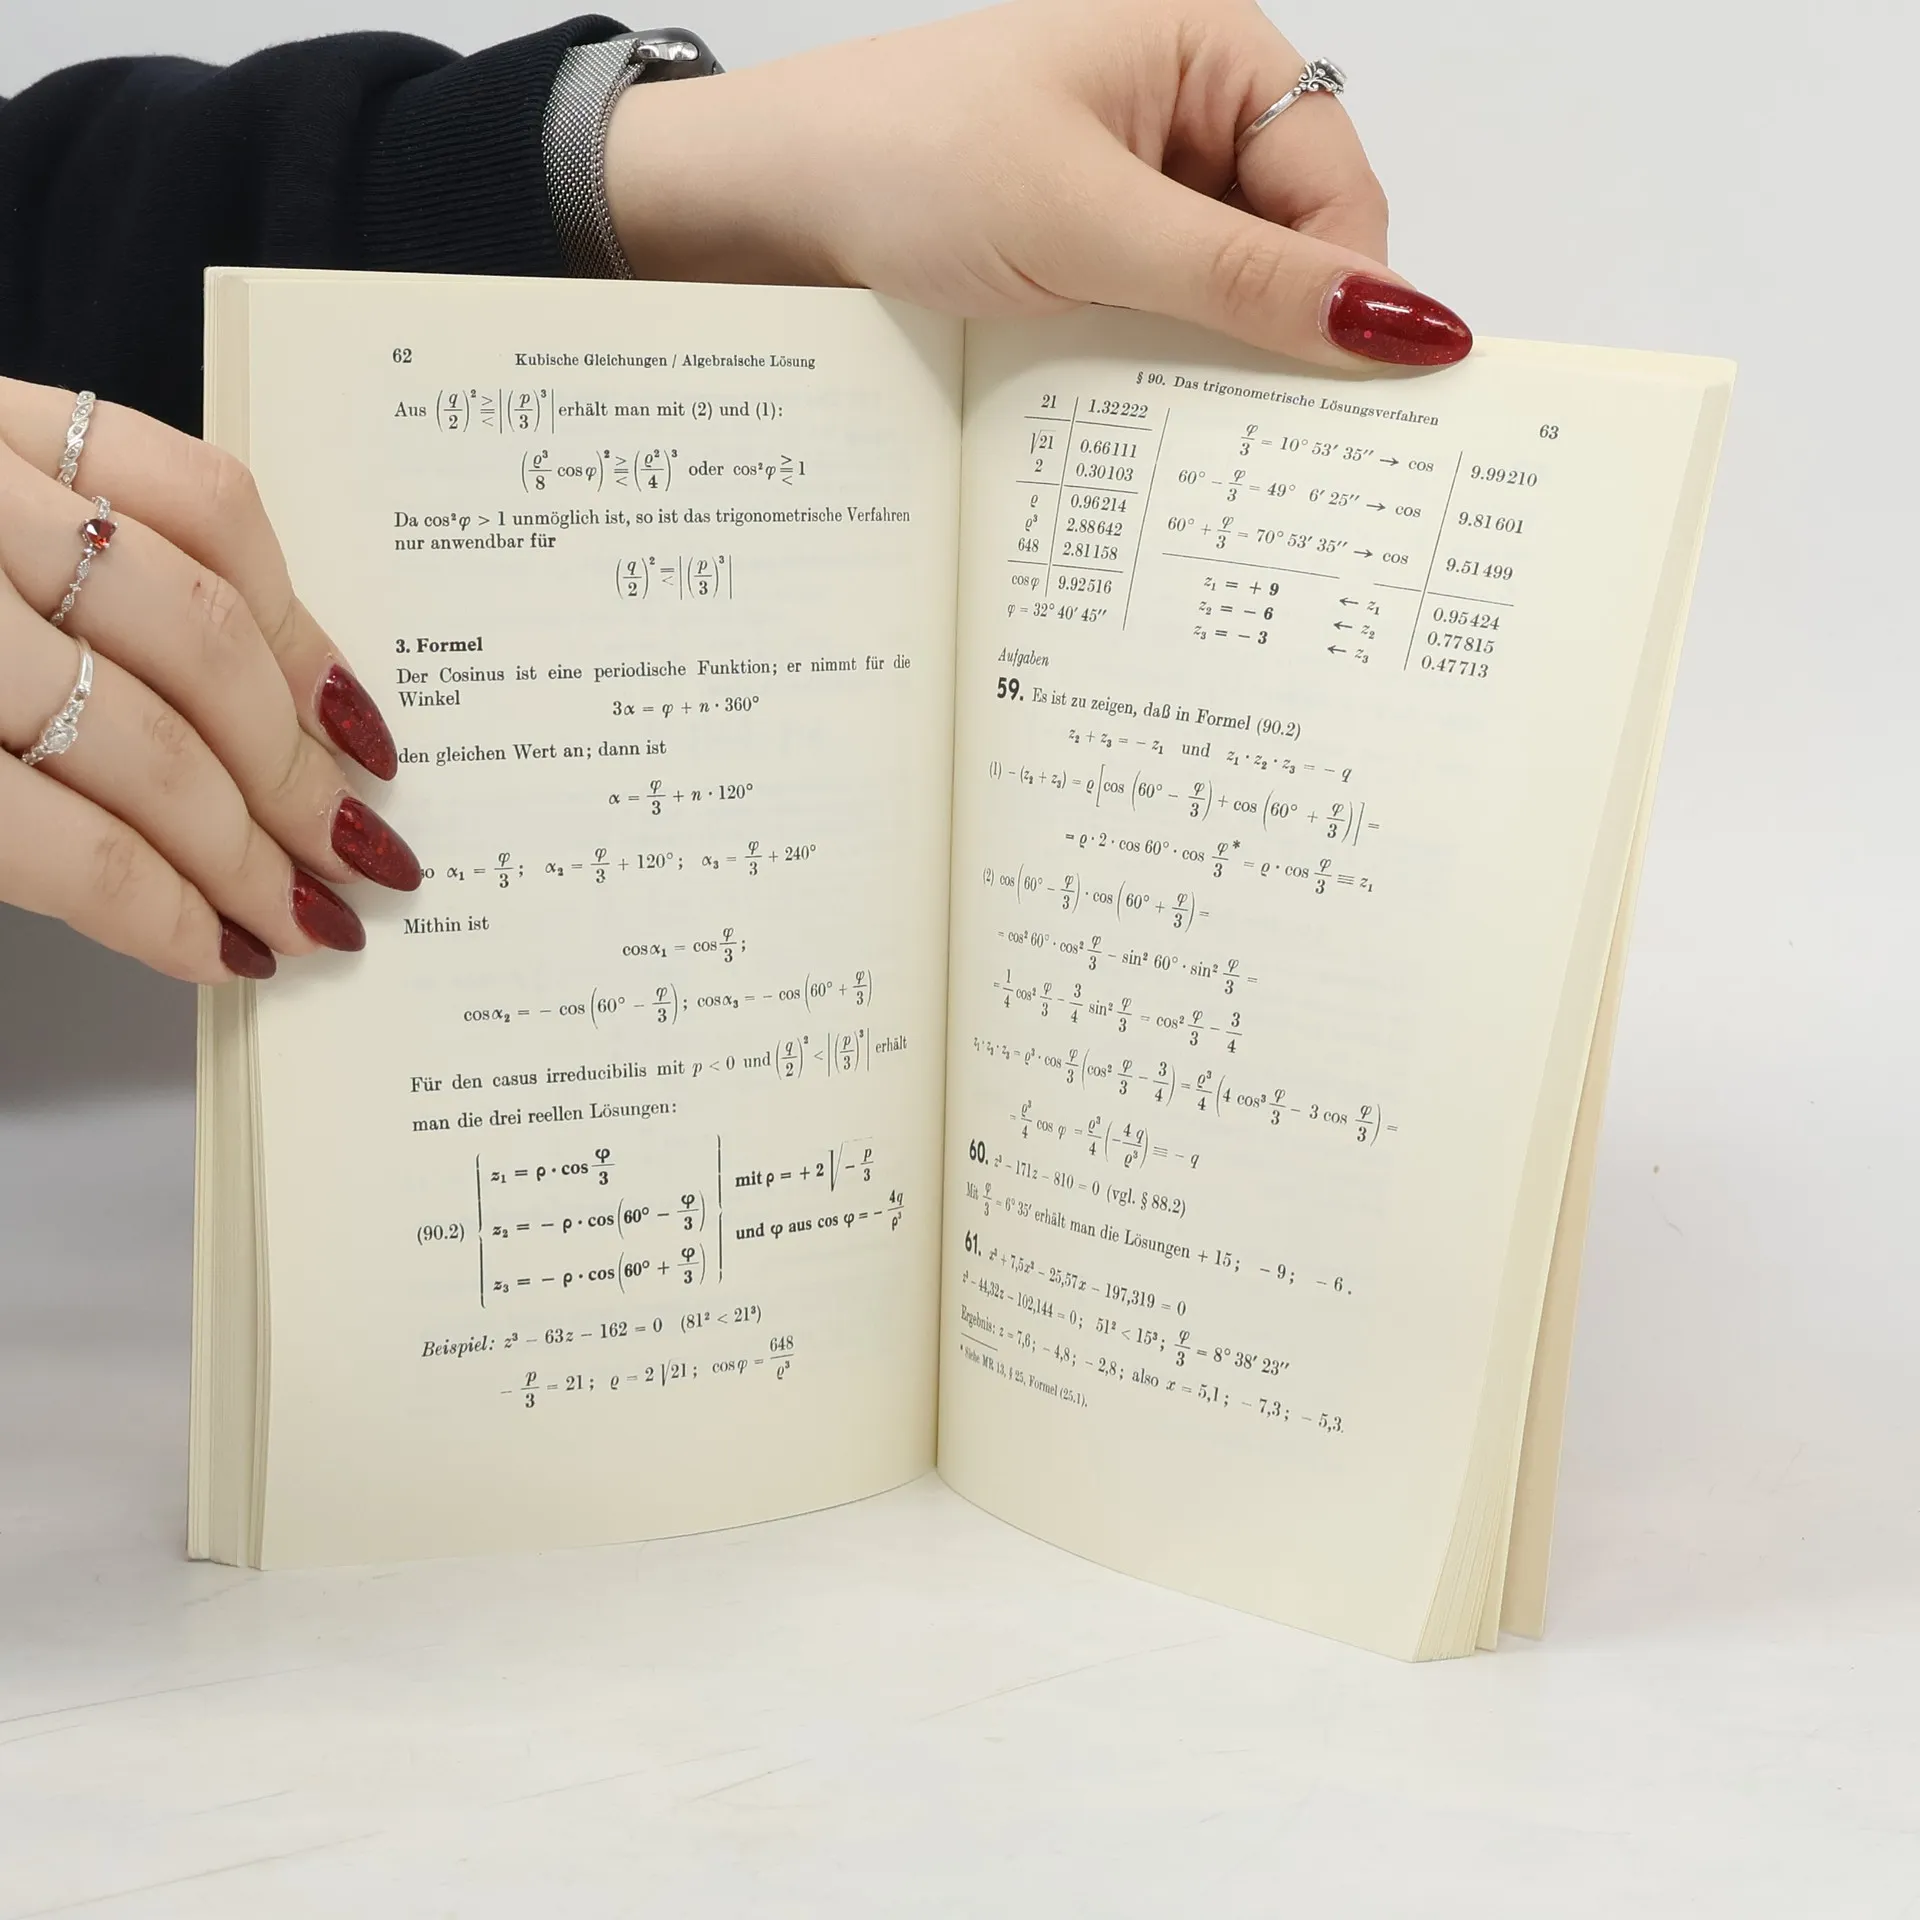 62 Kubische Gleichungen / Algebraische Lösung
Aus (q/2)² ⪌ |(p/3)³| erhält man mit (2) und (1):
(ϱ³/8 cos φ)² ⪌ (ϱ²/4)³ oder cos² φ ⪌ 1
Da cos² φ > 1 unmöglich ist, so ist das trigonometrische Verfahren
nur anwendbar für
(q/2)² ≦ |(p/3)³|
3. Formel
Der Cosinus ist eine periodische Funktion; er nimmt für die
Winkel
3α = φ + n · 360°
den gleichen Wert an; dann ist
α = φ/3 + n · 120°
so α₁ = φ/3; α₂ = φ/3 + 120°; α₃ = φ/3 + 240°
Mithin ist
cos α₁ = cos φ/3;
cos α₂ = − cos (60° − φ/3); cos α₃ = − cos (60° + φ/3)
Für den casus irreducibilis mit p < 0 und (q/2)² < |(p/3)³| erhält
man die drei reellen Lösungen:
z₁ = ρ · cos φ/3
(90.2) z₂ = − ρ · cos (60° − φ/3)
z₃ = − ρ · cos (60° + φ/3)
mit ρ = + 2 √−p/3
und φ aus cos φ = − 4q/ρ³
Beispiel: z³ − 63z − 162 = 0 (81² < 21³)
− p/3 = 21; ϱ = 2 √21; cos φ = 648/ϱ³
§ 90. Das trigonometrische Lösungsverfahren 63
21 1.32222
√21 0.66111
2 0.30103
ϱ 0.96214
ϱ³ 2.88642
648 2.81158
cos φ 9.92516
φ = 32° 40′ 45″
φ/3 = 10° 53′ 35″ → cos 9.99210
60° − φ/3 = 49° 6′ 25″ → cos 9.81601
60° + φ/3 = 70° 53′ 35″ → cos 9.51499
z₁ = + 9 ← z₁ 0.95424
z₂ = − 6 ← z₂ 0.77815
z₃ = − 3 ← z₃ 0.47713
Aufgaben
59. Es ist zu zeigen, daß in Formel (90.2)
z₂ + z₃ = − z₁ und z₁ · z₂ · z₃ = − q
(1) − (z₂ + z₃) = ϱ [cos (60° − φ/3) + cos (60° + φ/3)] =
= ϱ · 2 · cos 60° · cos φ/3 * = ϱ · cos φ/3 ≡ z₁
(2) cos (60° − φ/3) · cos (60° + φ/3) =
= cos² 60° · cos² φ/3 − sin² 60° · sin² φ/3 =
= 1/4 cos² φ/3 − 3/4 sin² φ/3 = cos² φ/3 − 3/4
z₁ · z₂ · z₃ = ϱ³ · cos φ/3 (cos² φ/3 − 3/4) = ϱ³/4 (4 cos³ φ/3 − 3 cos φ/3) =
= ϱ³/4 cos φ = ϱ³/4 (− 4q/ϱ³) ≡ − q
60. z³ − 171z − 810 = 0 (vgl. § 88.2)
Mit φ/3 = 6° 35′ erhält man die Lösungen + 15; − 9; − 6.
61. x³ + 7,5x² − 25,57x − 197,319 = 0
z³ − 44,32z − 102,144 = 0; 51² < 15³; φ/3 = 8° 38′ 23″
Ergebnis: z = 7,6; − 4,8; − 2,8; also x = 5,1; − 7,3; − 5,3.
* Siehe MR 13, § 25, Formel (25.1).